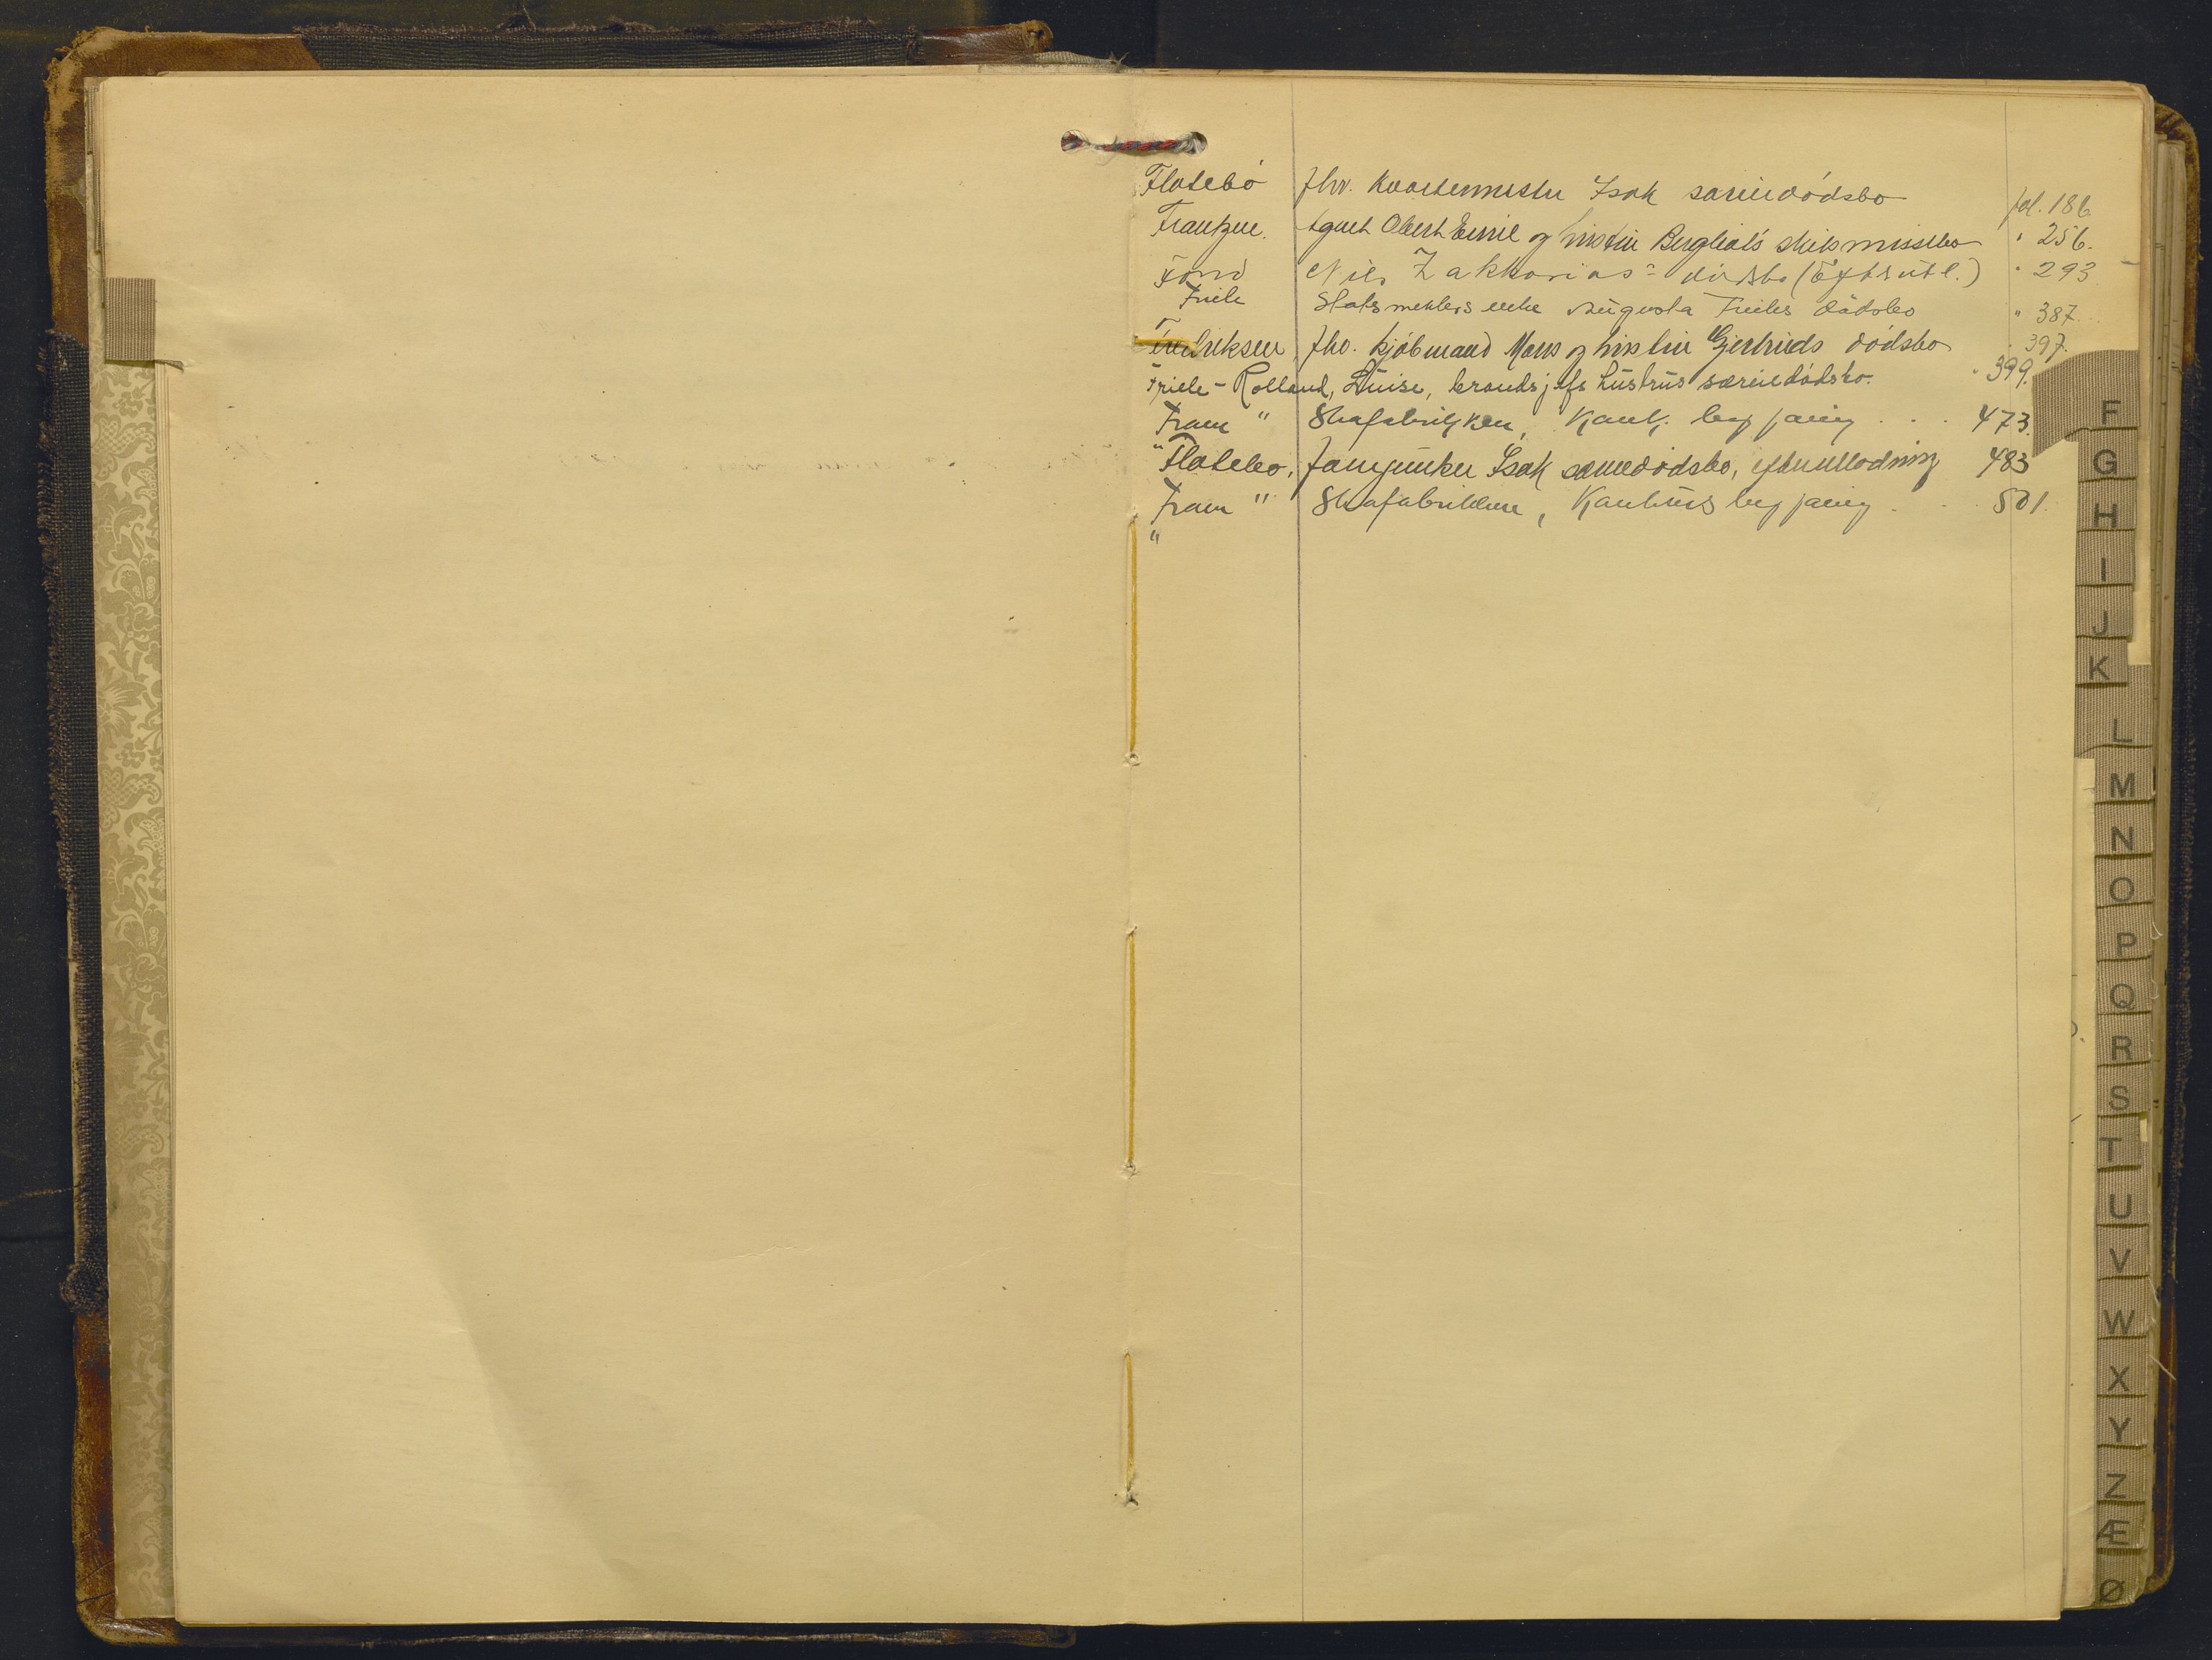 Flatebö fhv. kvartermester Isak særeiedödsbo fol. 186
Frantzen. Agent Obert Emil og hustru Bergliots skilsmissebo " 256.
Fond Nils Zakkarias' dödsbo (Eftsutl.) " 293
Friele Statsmeklers enke Augusta Frieles dödsbo " 387.
Fredriksen, fhv. kjöbmand Mons og hustru Gjertruds dödsbo " 397.
Friele-Rolland, Luise, brandsjefs hustrus særeiedödsbo. " 399.
"Fram" Skofabrikken, Konk. begjæring . . . 473.
Flatebo, Isak særeiedödsbo, efterutlodning 483
"Fram" Skofabrikken, Konkurs begjæring . . . 501.
F
G
H
I
J
K
L
M
N
O
P
Q
R
S
T
U
V
W
X
Y
Z
Æ
Ø